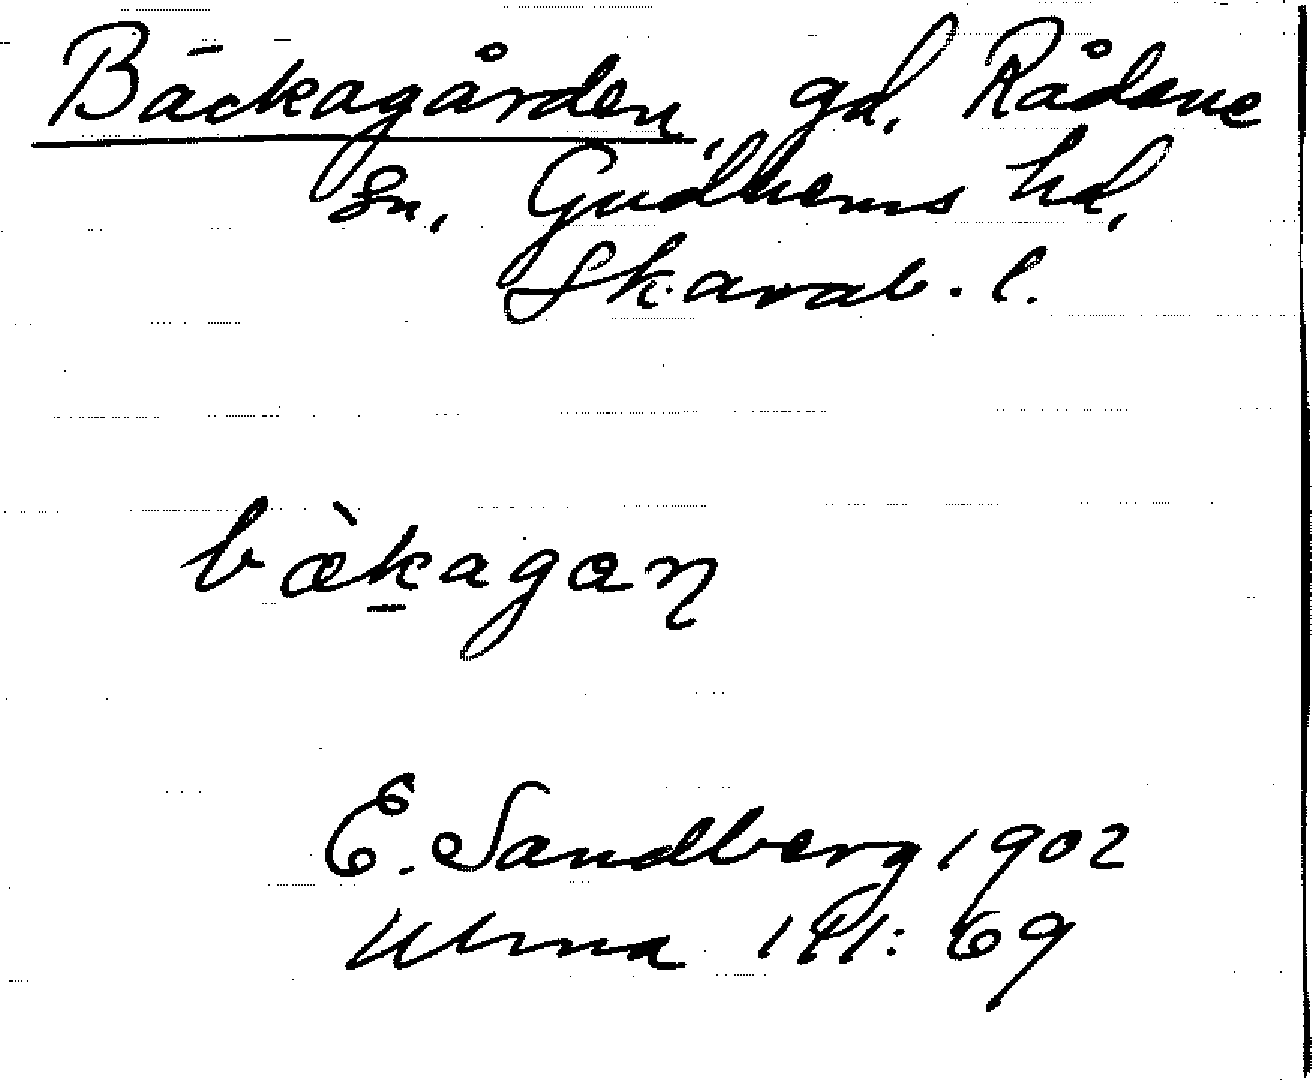 Bäckagården, gd, Rådene
sn, Gudhems hd,
Skarab. l.
bæ̀kagaɳ
E. Sandberg 1902
Ulma 141: 69